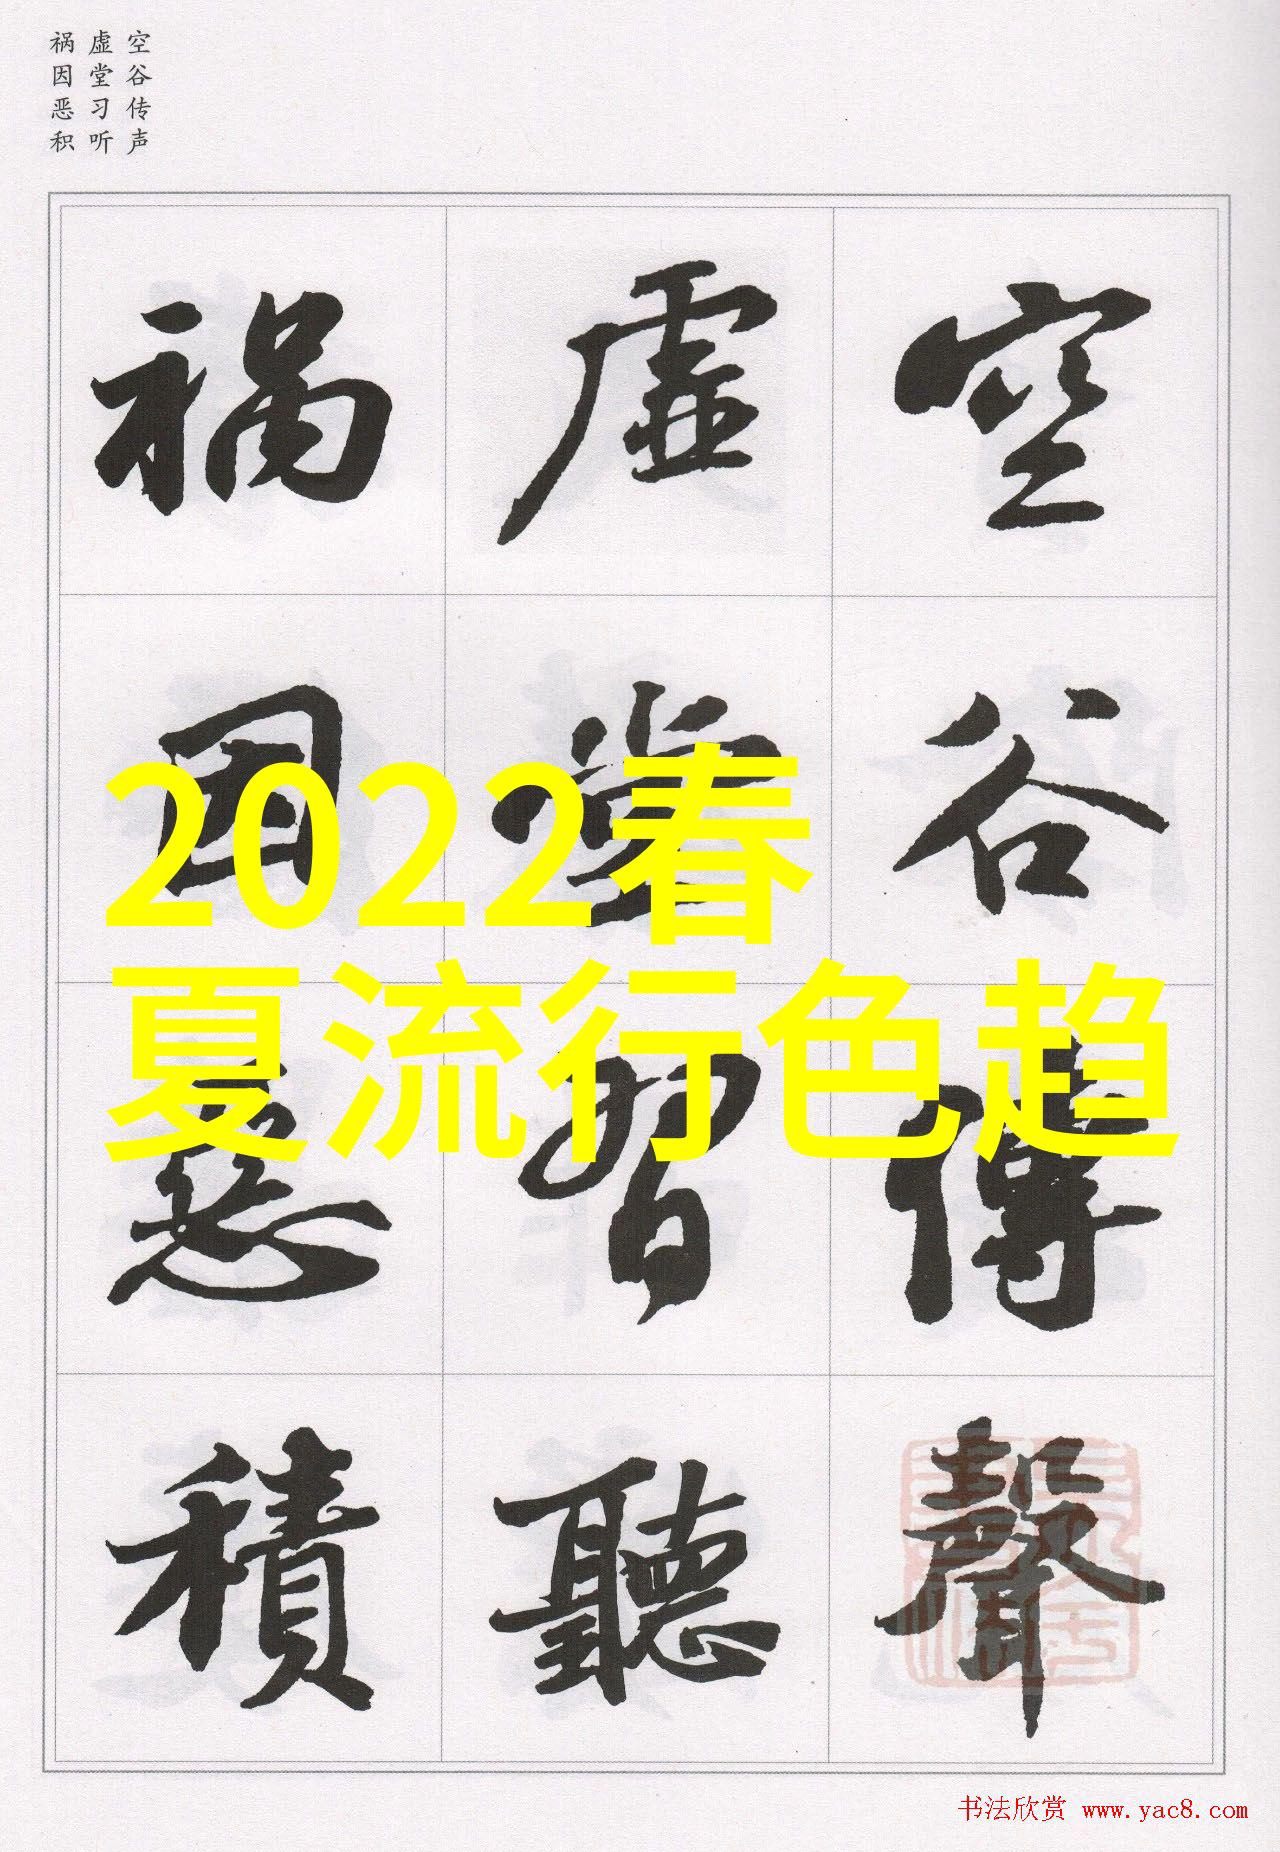 空谷传声
虚堂习听
祸因恶积
空谷傳聲
虛堂習聽
禍因惡積
2022春
夏流行色趋
书法欣赏 www.yac8.com